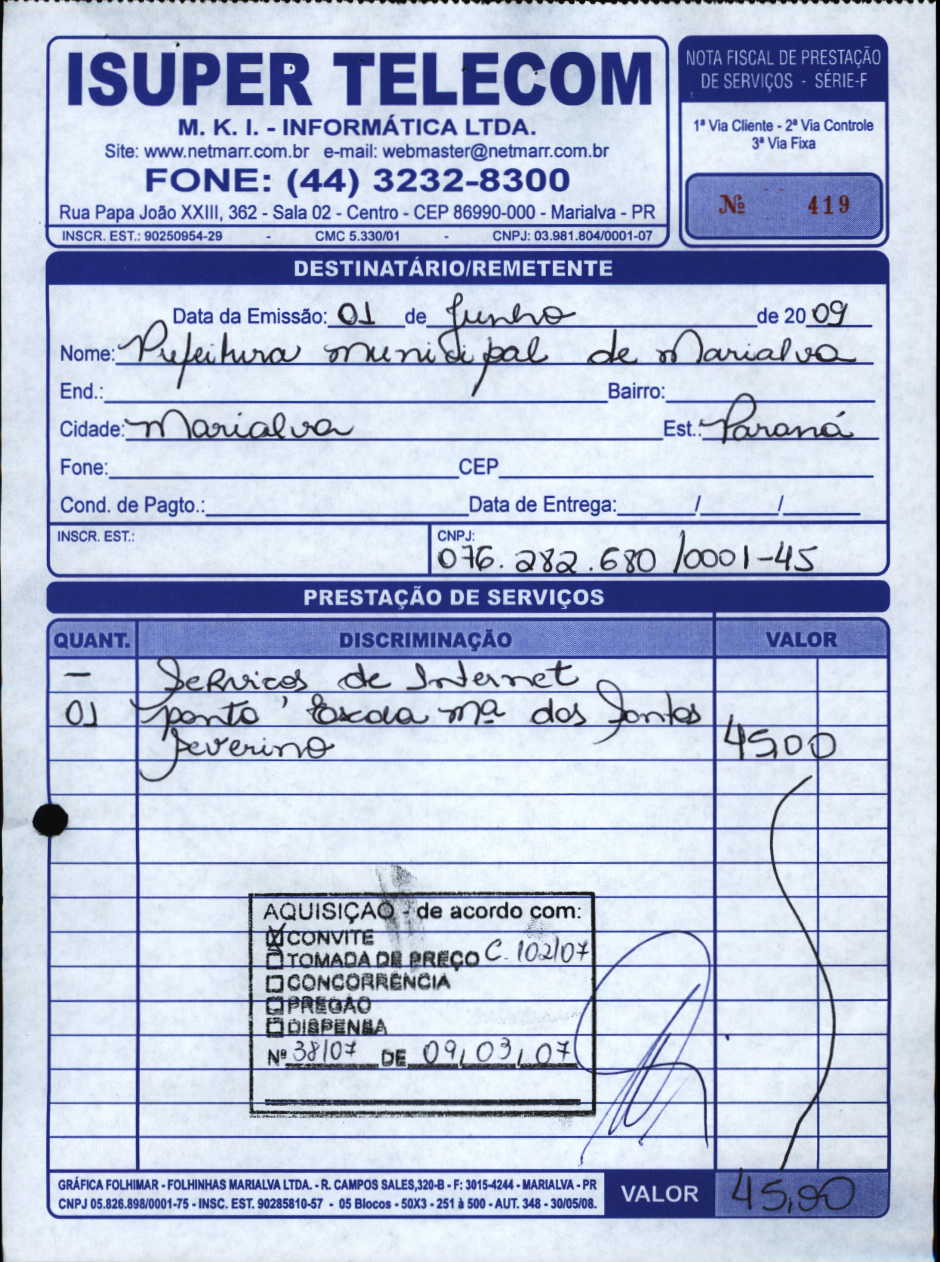 ISUPER TELECOM
M. K. I. - INFORMÁTICA LTDA.
Site: www.netmarr.com.br e-mail: webmaster@netmarr.com.br
FONE: (44) 3232-8300
Rua Papa João XXIII, 362 - Sala 02 - Centro - CEP 86990-000 - Marialva - PR
INSCR. EST.: 90250954-29 - CMC 5.330/01 - CNPJ: 03.981.804/0001-07
NOTA FISCAL DE PRESTAÇÃO
DE SERVIÇOS - SÉRIE-F
1ª Via Cliente - 2ª Via Controle
3ª Via Fixa
Nº 419
DESTINATÁRIO/REMETENTE
Data da Emissão: 01 de Junho de 2009
Nome: Prefeitura municipal de Marialva
End.: Bairro:
Cidade: Marialva Est.: Paraná
Fone: CEP
Cond. de Pagto.: Data de Entrega: / /
INSCR. EST.: CNPJ:
076.282.680/0001-45
PRESTAÇÃO DE SERVIÇOS
QUANT. DISCRIMINAÇÃO VALOR
- Servicos de Internet
01 ponto Escola Mª dos Santos
Severino 45,00
AQUISIÇAO - de acordo com:
X CONVITE
TOMADA DE PREÇO C. 102/07
CONCORRENCIA
PREGAO
DISPENSA
Nº 38/07 DE 09/03/07
GRÁFICA FOLHIMAR - FOLHINHAS MARIALVA LTDA. - R. CAMPOS SALES,320-B - F: 3015-4244 - MARIALVA - PR
CNPJ 05.826.898/0001-75 - INSC. EST. 90285810-57 - 05 Blocos - 50X3 - 251 à 500 - AUT. 348 - 30/05/08.
VALOR 45,00